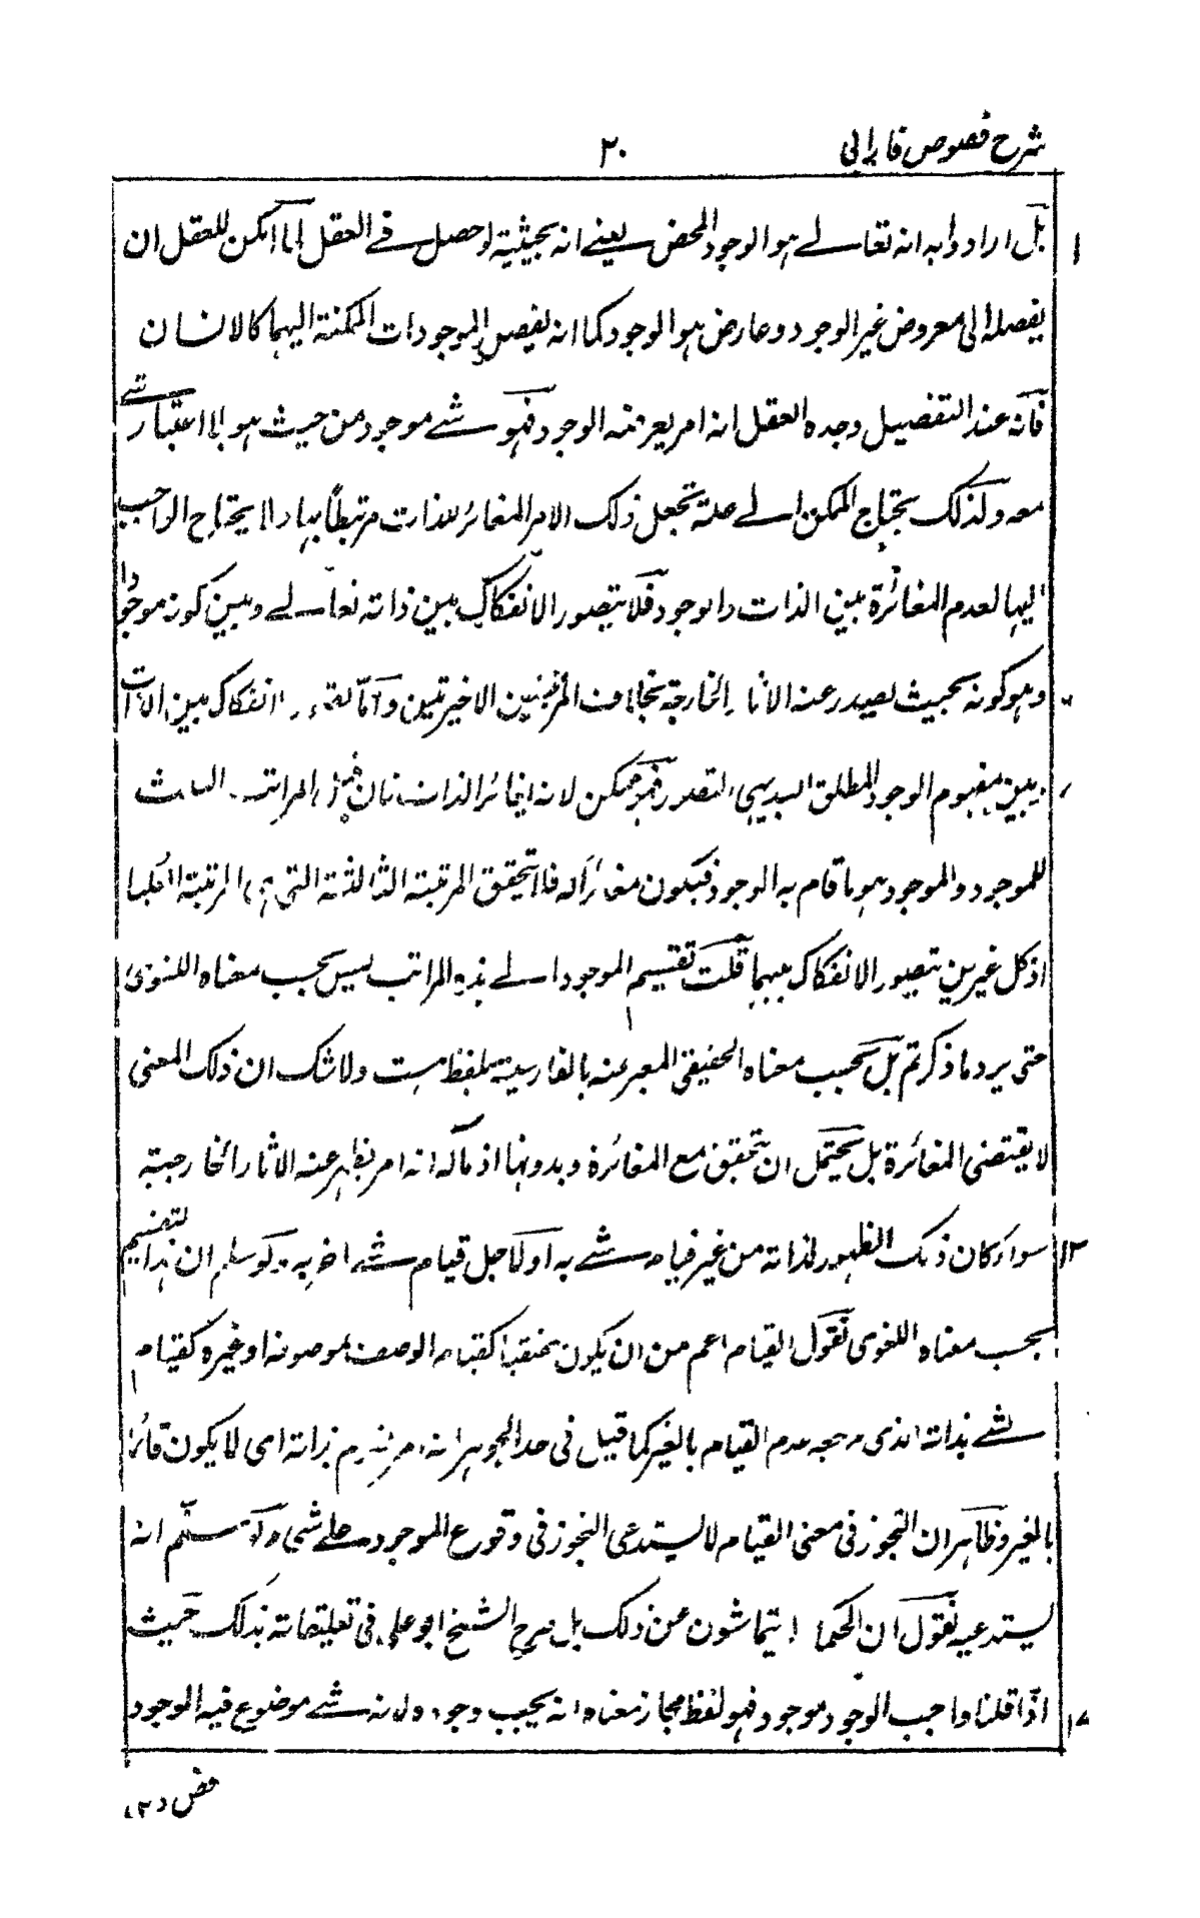 شرح فصوص فارابی
۲۰
بل ارادوا به انه تعالے هو الوجود المحض یعنے انه بحیثیة لو حصل فے العقل لما امکن للعقل ان
یفصله الی معروض غیر الوجود و عارض هو الوجود کما انه یفصل الموجودات الممکنة الیهما کالانسان
فانه عند التفصیل وجده العقل انه امر یعرضه الوجود فهو شے موجود من حیث هو بلا اعتبار شے
معه ولذلک یحتاج الممکن الے علة تجعل ذلک الامر المغائر للذات مرتبطاً بها ولا یحتاج الواجب
الیها لعدم المغائرة بین الذات والوجود فلا یتصور الانفکاک بین ذاته تعالے وبین کونه موجوداً
وهو کونه بحیث یصدر عنه الآثار الخارجیة بخلاف المرتبتین الاخیرتین واما انفکاک بین الذات
وبین مفهوم الوجود المطلق البدیهی التصور فهو ممکن لانه یغائر الذات فان المراتب الثلث
للموجود والموجود هو ما قام به الوجود فیکون مغائراً له فلا تتحقق المرتبة الثالثة التی هی المرتبة العلیا
اذ کل غیرین یتصور الانفکاک بینهما قلت تقسیم الموجود الے هذه المراتب لیس بحسب معناه اللغوی
حتی یرد ما ذکرتم بل بحسب معناه الحقیقی المعبر عنه بالفارسیة بلفظ هست ولا شک ان ذلک المعنی
لا یقتضی المغائرة بل یحتمل ان یتحقق مع المغائرة وبدونها اذ مآله انه امر یظهر عنه الآثار الخارجیة
۱۲ سواء کان ذلک الظهور لذاته من غیر قیام شے به او لاجل قیام شے اخر به ولو سلم ان هذا التقسیم
بحسب معناه اللغوی فنقول القیام اعم من ان یکون حقیقیا کقیام الوصف بموصوفه او غیره کقیام
شے بذاته الذی مرجعه عدم القیام بالغیر کما قیل فی حد الجوهر انه امر یقوم بذاته ای لا یکون قائما
بالغیر وظاهر ان التجوز فی معنی القیام لا یستدعی التجوز فی وقوع الموجود علے شی ولو سلم انه
یستدعیه فنقول ان الحکماء لا یتحاشون عن ذلک بل صرح الشیخ ابو علی فی تعلیقاته بذلک حیث
اذا قلنا واجب الوجود موجود فهو لفظ مجاز معناه انه یجب وجوده لا انه شے موضوع فیه الوجود
فص (۲)